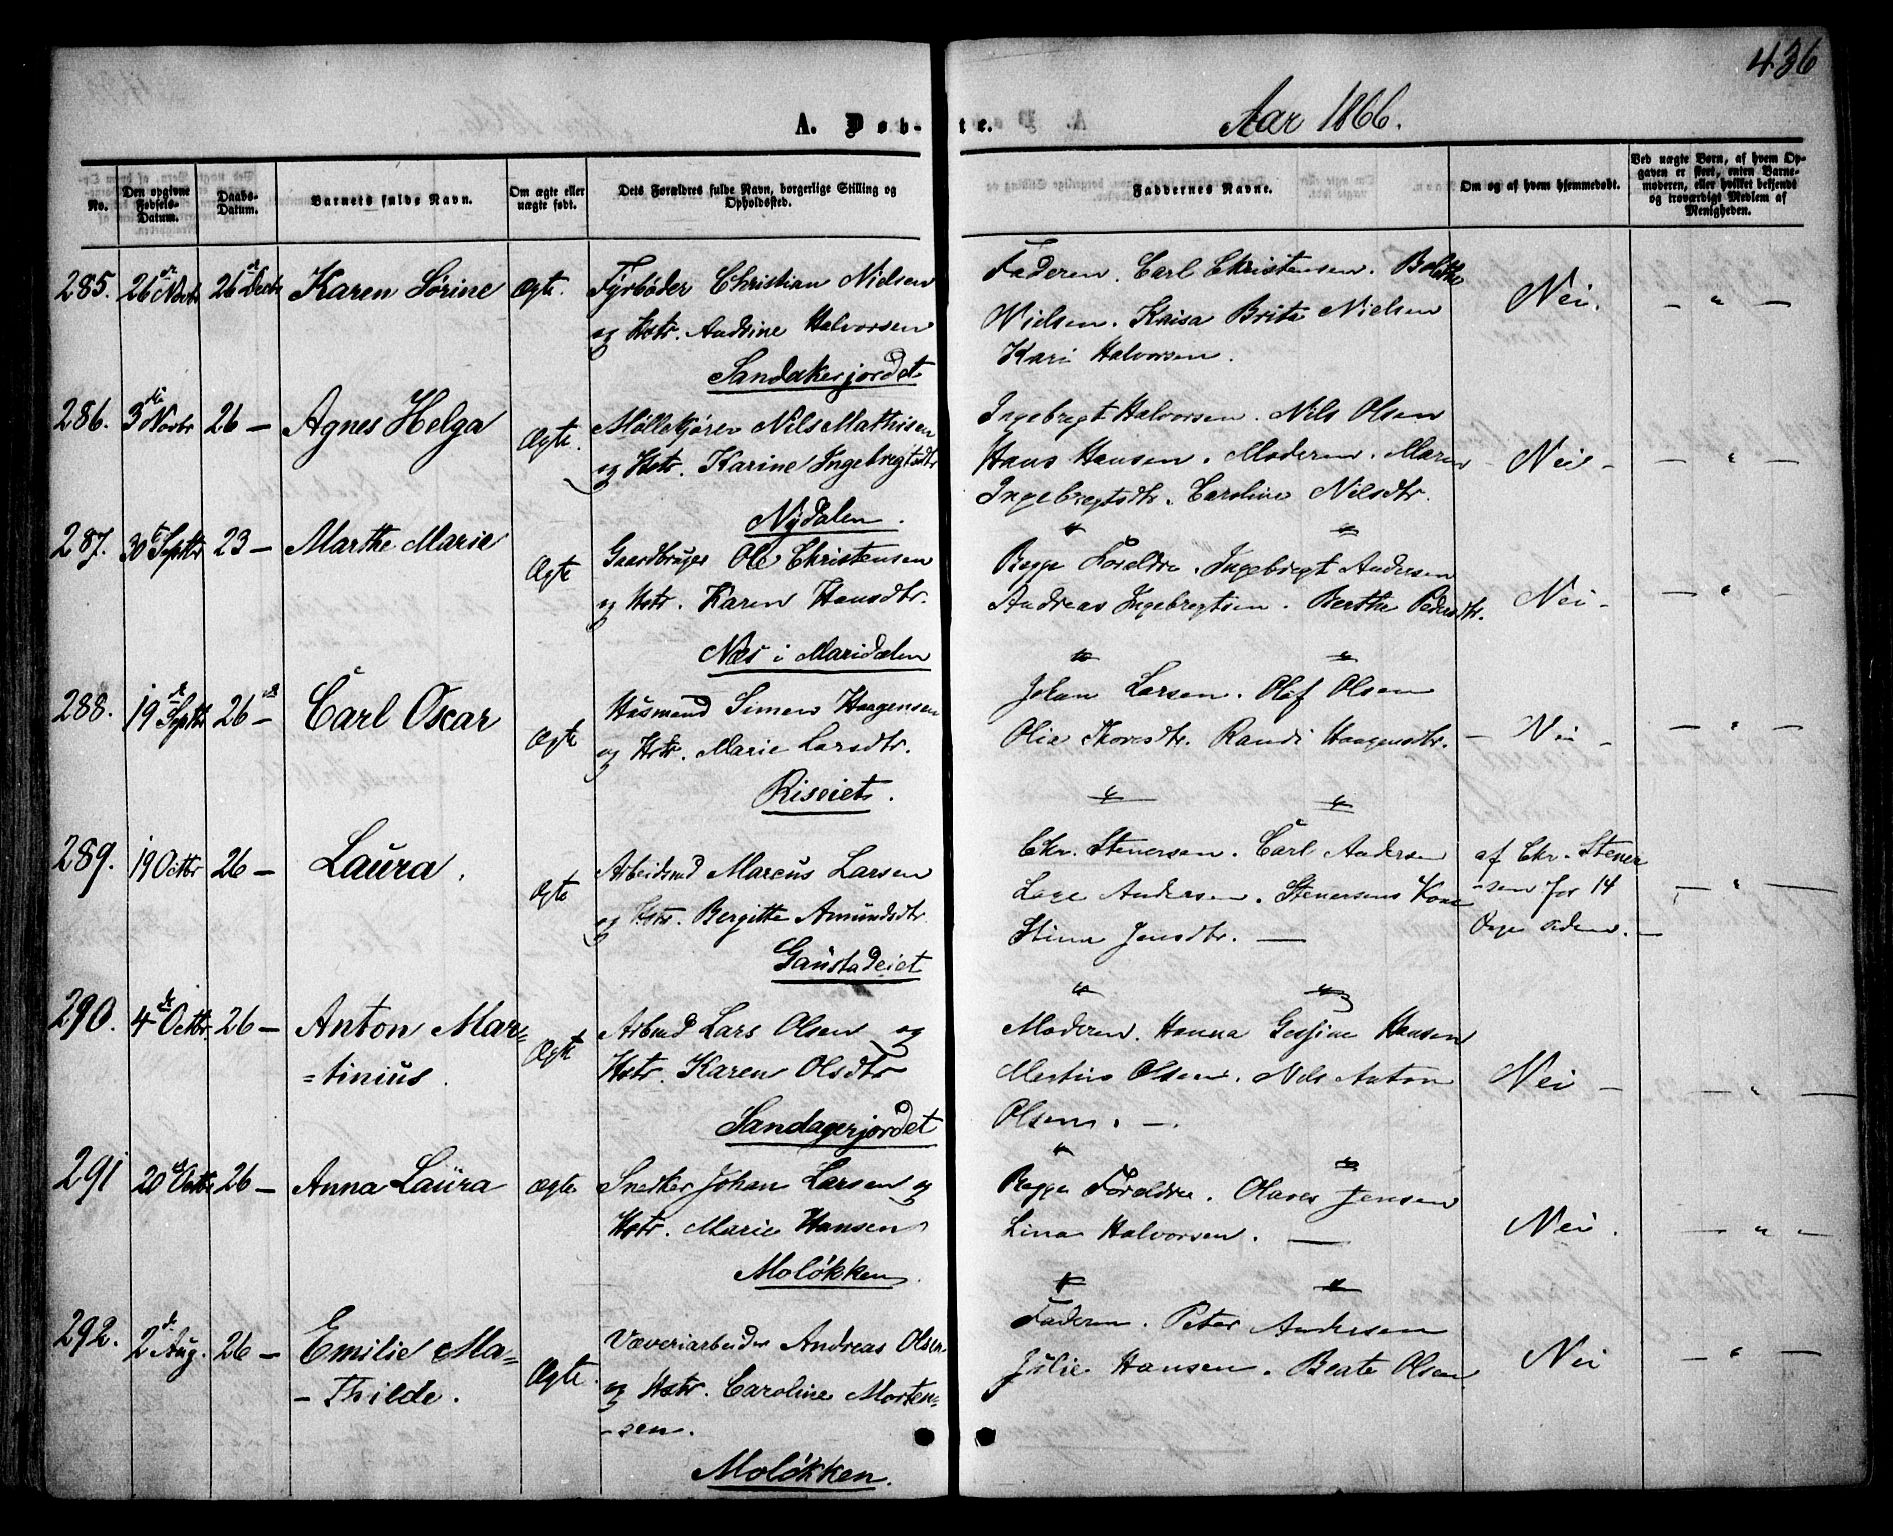 436
A. Døb-te. Aar 1866.
No. | Den opgivne Fødsels-Datum. | Daabs-Datum. | Barnets fulde Navn. | Om ægte eller uægte født. | Dets Forældres fulde Navn, borgerlige Stilling og Opholdssted. | Faddernes Navne. | Om og af hvem hjemmedøbt. | Ved uægte Børn, af hvem Opgaven er skeet, enten Barnemoderen, eller hvilket bekjendt og troværdigt Medlem af Menigheden.
285. 26 Novbr 26 Decbr Karen Sørine Ægte. Fyrbøder Christian Nielsen Faderen. Carl Christensen. Bolette
og Hstr. Andrine Halvorsen Nielsen. Kaisa Brita Nielsen Nei. — " —
Sandakerjordet Kari Halvorsen.
286. 3 Novbr 26 — Agnes Helga Ægte. Møllekjører Nils Mathisen Ingebregt Halvorsen. Nils Olsen
og Hstr. Karine Ingebregtsdtr Hans Hansen. Moderen. Maren — Nei — — " —
Nydalen. Ingebregtsdtr. Caroline Nilsdtr.
287. 30 Septbr 23 — Marthe Marie Ægte Gaardbruger Ole Christensen Begge Forældre. Ingebregt Andersen
og Hstr. Karen Hansdtr. Andreas Ingebregtsen. Berthe Pedersdtr. Nei — — " —
Næs i Maridalen
288. 19 Septbr 26 — Carl Oscar Ægte Husmand Simen Haagensen Johan Larsen. Olaf Olsen
og Hstr. Marie Larsdtr. Olia Thoresdtr. Randi Haagensdtr. — Nei — — " —
Riseiet.
289. 19 Octbr 26 — Laura. Ægte Arbeidsmd Marcus Larsen Chr. Stenersen. Carl Andersen af Chr. Stener
og Hstr. Bergitte Amundsdtr. Andersen. Stenersens Kone -sen for 14 — " —
Gaustadeiet Stina Jensdtr. — Dage siden. —
290. 4 Octbr. 26 — Anton Mar= Ægte Arbmd Lars Olsen og Moderen. Hanna Hansen
=tinius. Hstr. Karen Olsdtr Martin Olsen. Nils Anton Nei — — " —
Sandagerjordet Olsen. —.
291 20 Octbr 26 — Anna Laura Ægte Snedker Johan Larsen og Begge Forældre. Olaves Jensen
Hstr. Marie Hansen Lina Halvorsen. — Nei. — " —
Moløkken.
292. 2 Aug. 26 — Emilie Ma= Ægte. Væveriarbeider Andreas Olsen Faderen. Peter Andersen
- Thilde. og Hstr. Caroline Morten= Julie Hansen. Beate Olsen. Nei — " —
-sen.
Moløkken.